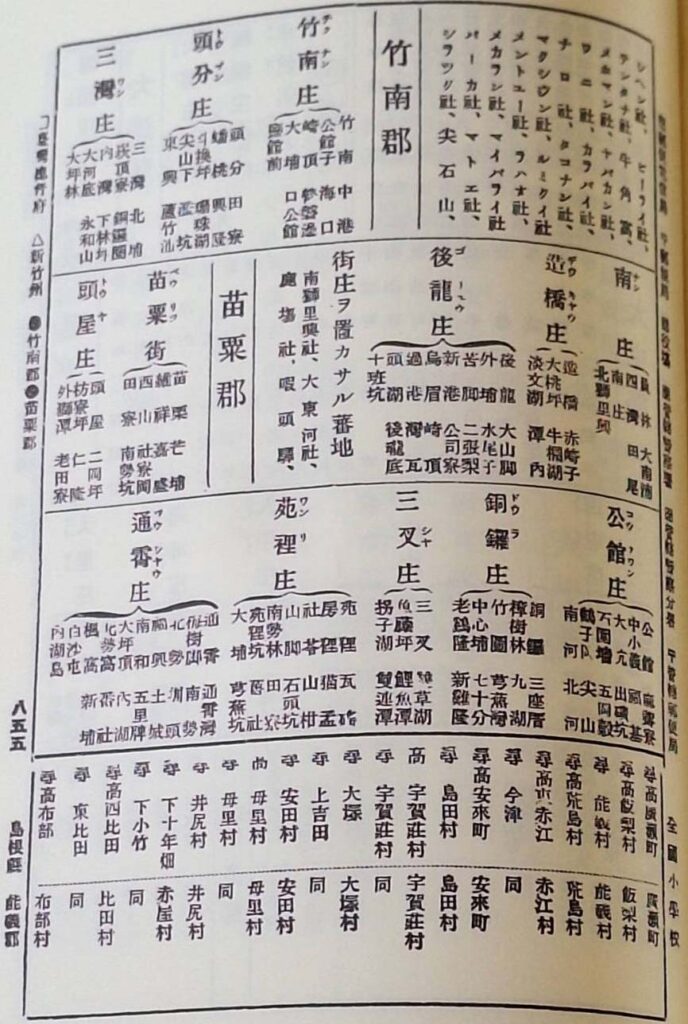 シヘン社、ビーライ社、
テンタナ社、牛角嵩、
メホマン社、ヤバカン社、
ワニ社、カラパイ社、
ナロ社、タコナン社、
マクシウン社、ルミクイ社
メントユー社、ラハオ社、
メカラン社、マイバライ社
バーカ社、マトエ社、
シラツク社、尖石山、
竹南郡
竹南庄
チクナン
竹南 中港
公館子 海口
崎頂
大埔 口公館
鹽館前
頭分庄
トウフン
頭分 田寮
蟠桃 興隆
斗換坪 珊珠湖
尖山下 濫坑
東興 蘆竹湳
三灣庄
ワン
三灣 北埔
崁頂寮 銅鑼圈
內灣 下林坪
大河底 永和山
大坪林
南庄
ナン
員林 大南埔
四灣 田尾
南庄
北獅里興
造橋庄
ザウキヤウ
造橋 赤崎子
大桃坪 牛欄湖
淡文湖 潭內
後龍庄
後龍 大山脚
外埔 水尾子
苦脚 二張犁
新港 公司寮
烏眉 崎頂
過港 灣瓦
頭湖 後龍底
十班坑
街庄ヲ置カサル蕃地
南獅里興社、大東河社、
鹿塲社、暇頭驛、
苗粟郡
苗粟街
ベウリツ
苗栗 芒埔
維祥 嘉盛
西山 社寮岡
田寮 南勢坑
頭屋庄
トウヤ
頭屋 二岡坪
枋寮坪 仁隆
外獅潭 老田寮
公館庄
コウクワン
公館 麻薺寮
中小義 福基
大坑 出磺坑
石圍墻 五岡穀
鶴子岡 尖山
南河 北河
銅鑼庄
ドウラ
銅鑼 三座厝
樟樹林 九湖
竹圍 芎蕉灣
中心埔 七十分
老鷄隆 新雞隆
三叉庄
シヤ
三叉 雙草湖
魚藤坪 鯉魚潭
拐子湖 雙連潭
苑裡庄
ワンリ
苑裡 瓦磘
房裡 猫盂
社苓 山柑
山脚 石頭坑
南勢林 田寮
苑裡坑 舊社
大埔 芎蕉坑
通霄庄
ツウシヤウ
通霄 通霄灣
梅樹脚 南勢
北勢 圳頭
福興 土城
南和 五里牌
大坪頂 內湖
北勢窩 番社
楓 新埔
白沙屯
內湖島
尋高廣瀨町 廣瀨町
尋高飯梨村 飯梨村
尋能義村 能義村
尋高荒島村 荒島村
尋高赤江 赤江村
尋今津 同
尋高安來町 安來町
尋島田村 島田村
高宇賀莊村 宇賀莊村
尋宇賀莊村 同
尋大塚 大塚村
尋上吉田 同
尋安田村 安田村
尚母里村 母里村
尋母里村 同
尋井尻村 井尻村
尋下十年畑 赤屋村
尋下小竹 同
尋高西比田 比田村
尋東比田 同
尋高布部 布部村
△新竹州 ●竹南郡●苗粟郡
八五五
島根縣 能義郡
全國小學校